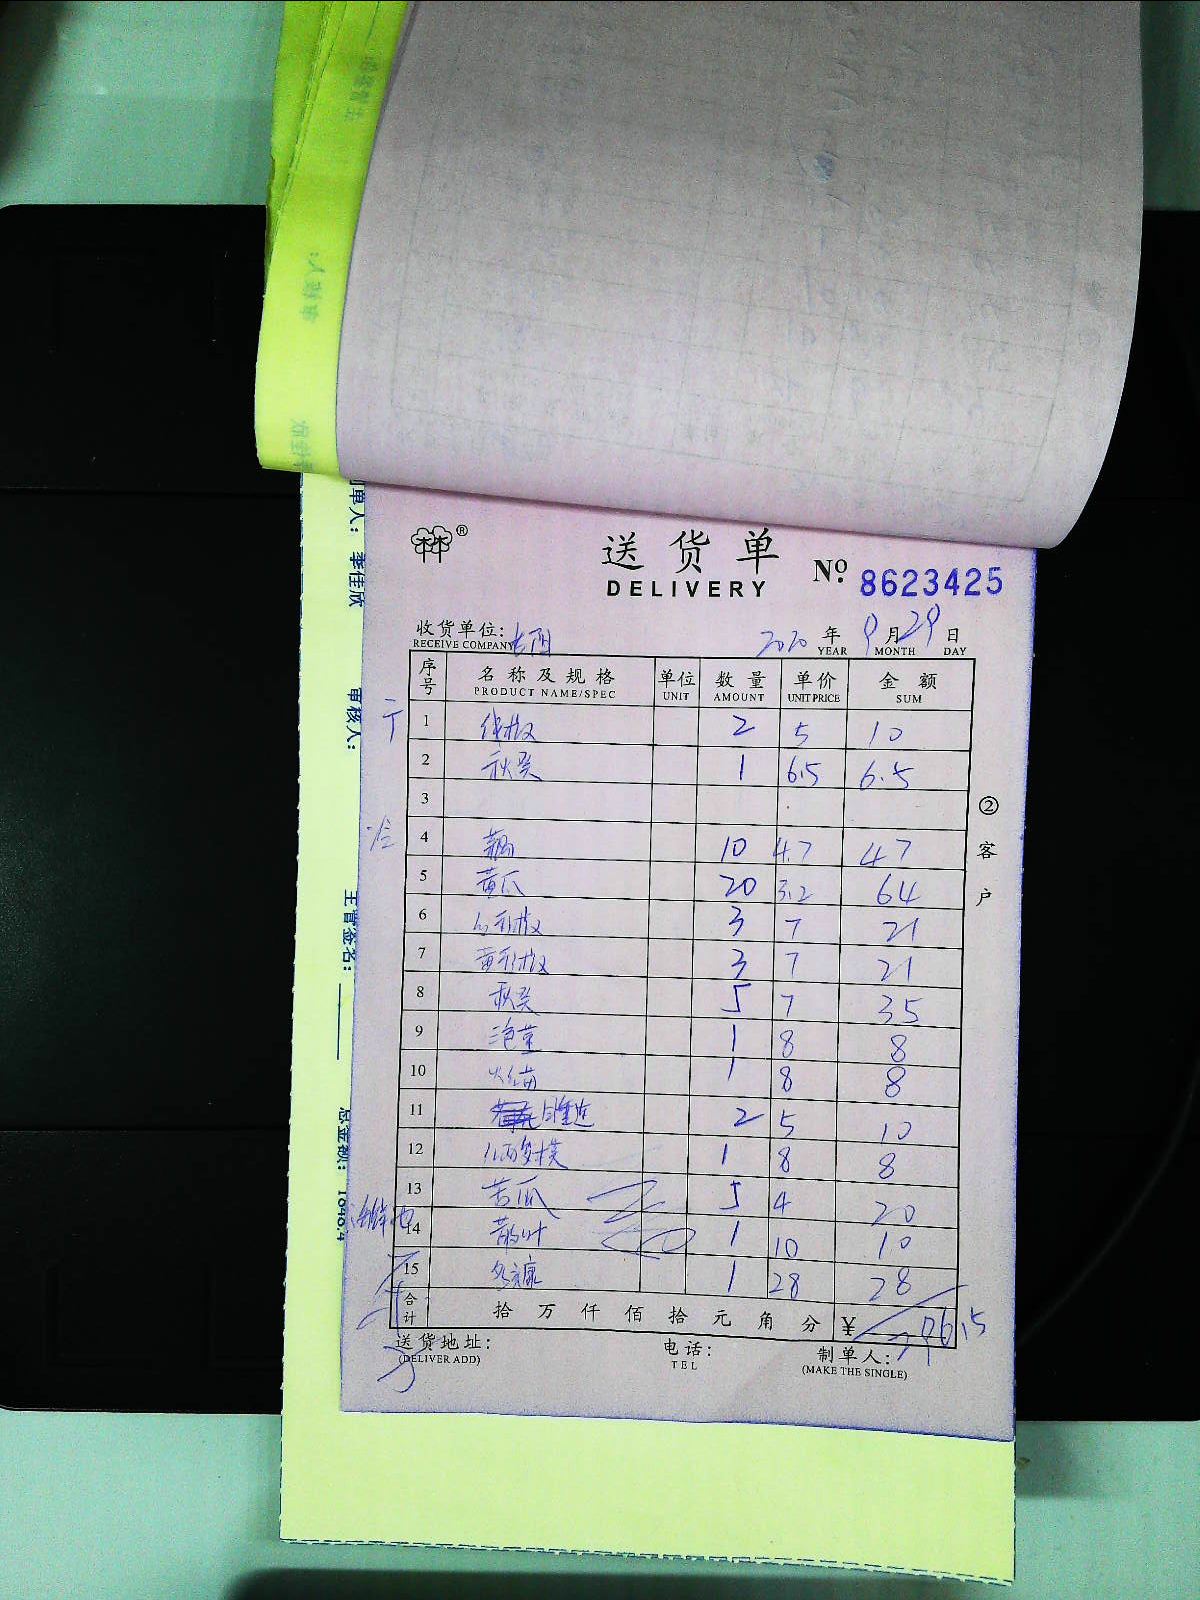 送货单
DELIVERY
No. 8623425
收货单位:
RECEIVE COMPANY
2020 年 9 月 29 日
YEAR MONTH DAY
序号 名称及规格 单位 数量 单价 金额
PRODUCT NAME/SPEC UNIT AMOUNT UNIT PRICE SUM
1 线椒 2 5 10
2 秋葵 1 6.5 6.5
3
4 10 4.7 47
5 黄瓜 20 3.2 64
6 3 7 21
7 3 7 21
8 秋葵 5 7 35
9 1 8 8
10 1 8 8
11 2 5 10
12 1 8 8
13 苦瓜 5 4 20
14 1 10 10
15 1 28 28
合计 拾 万 仟 佰 拾 元 角 分 ¥ 296.5
送货地址: 电话: 制单人:
(DELIVER ADD) TEL (MAKE THE SINGLE)
② 客户
单人: 李佳欣
审核人:
主管签名:
总金额: 1848.4